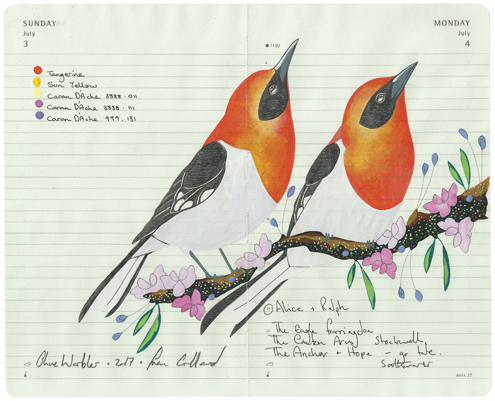 SUNDAY
July
3
MONDAY
July
4
Tangerine
Sun Yellow
Caran D'Ache 3888 · 011
Caran D'Ache 3888 · 111
Caran D'Ache 999 · 131
Alice + Ralph
The Eagle Farringdon
The Canton Arms Stockwell
The Anchor + Hope - gr tve.
Southwark
Olive Warbler · 2017 ·
6
6